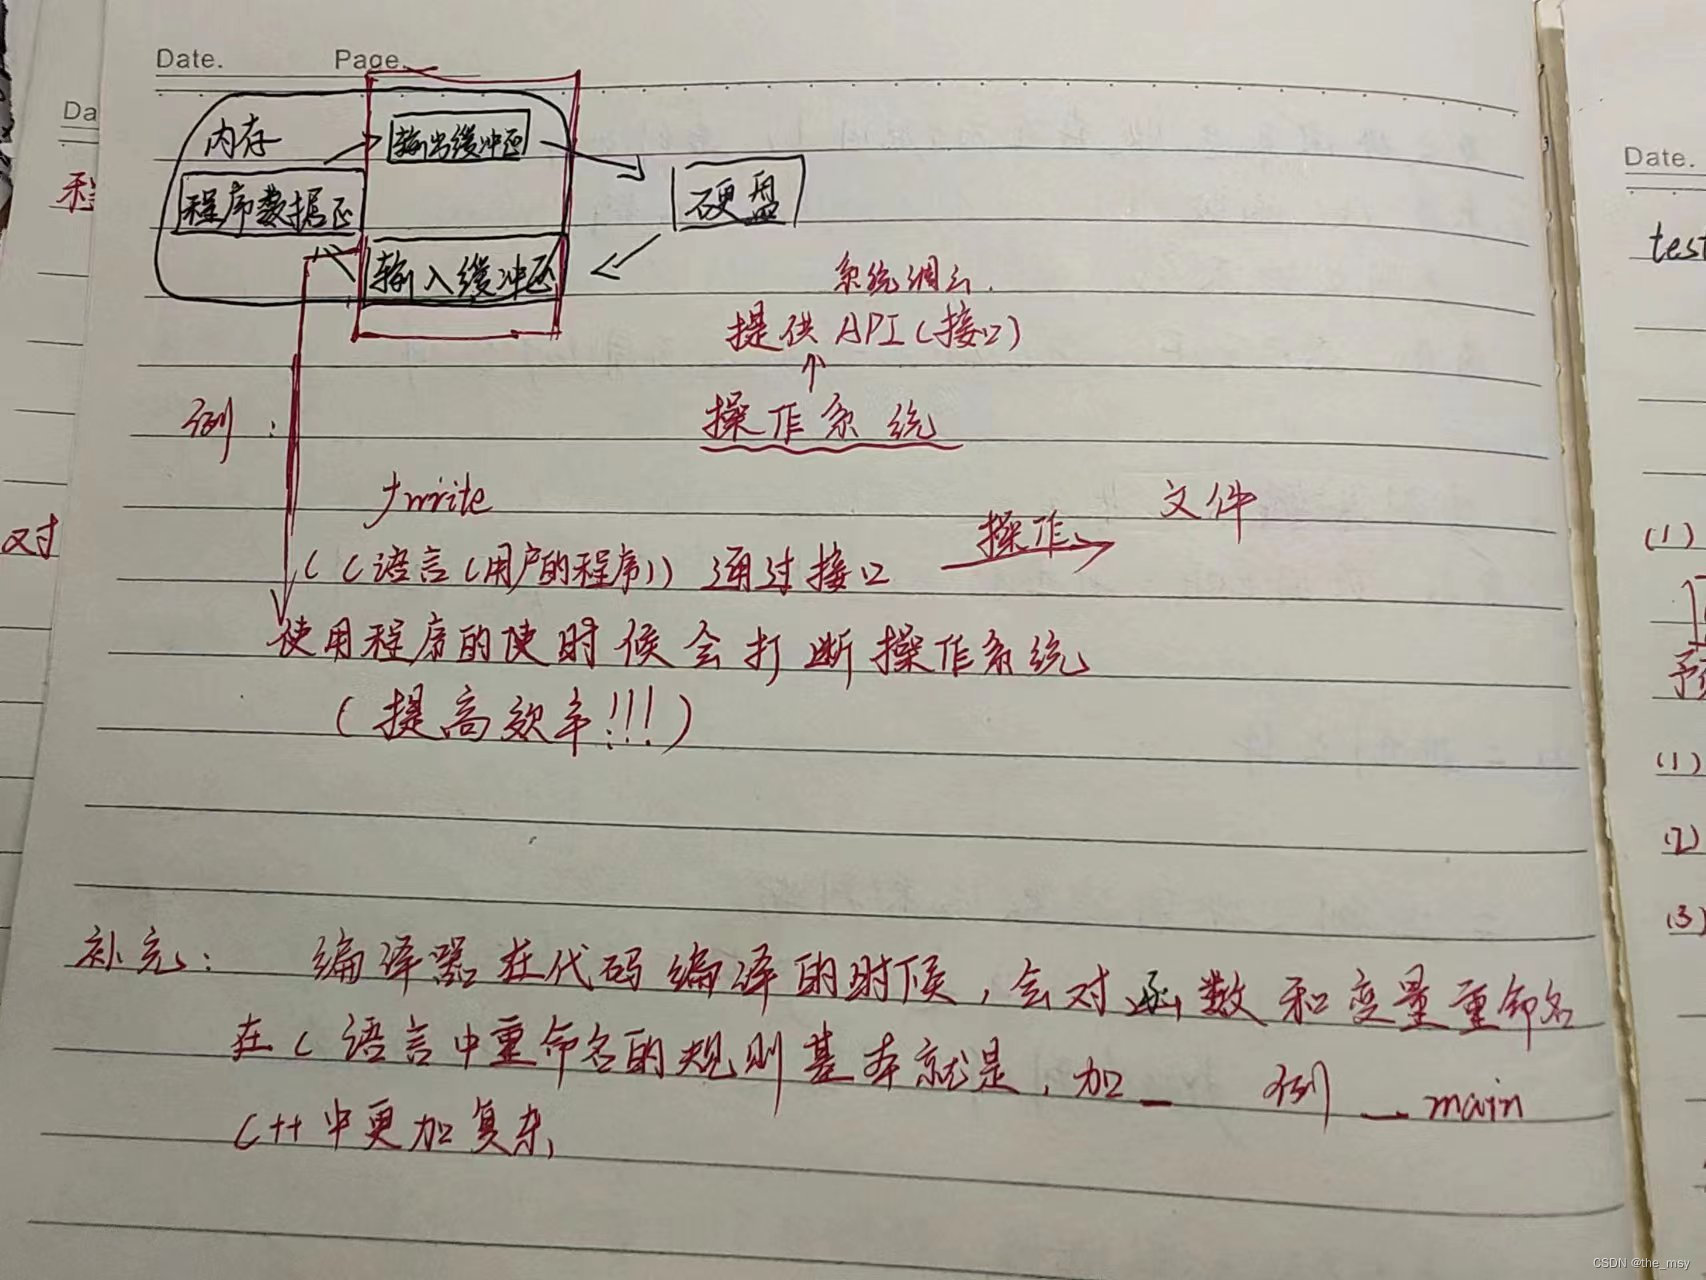 Date.
Page.
Da
Date.
内存
输出缓冲区
程序数据区
硬盘
输入缓冲区
系统调云.
提供API(接口)
例:
操作系统
fwrite
文件
(C语言(用户的程序)) 通过接口
操作
使用程序的使时候会打断操作系统
(提高效率!!!)
补充: 编译器在代码编译的时候,会对函数和变量重命名
在C语言中重命名的规则基本就是,加_ 例 _main
C++中更加复杂,
程
对
test
(1)
(1)
(2)
(3)
CSDN @the_msy